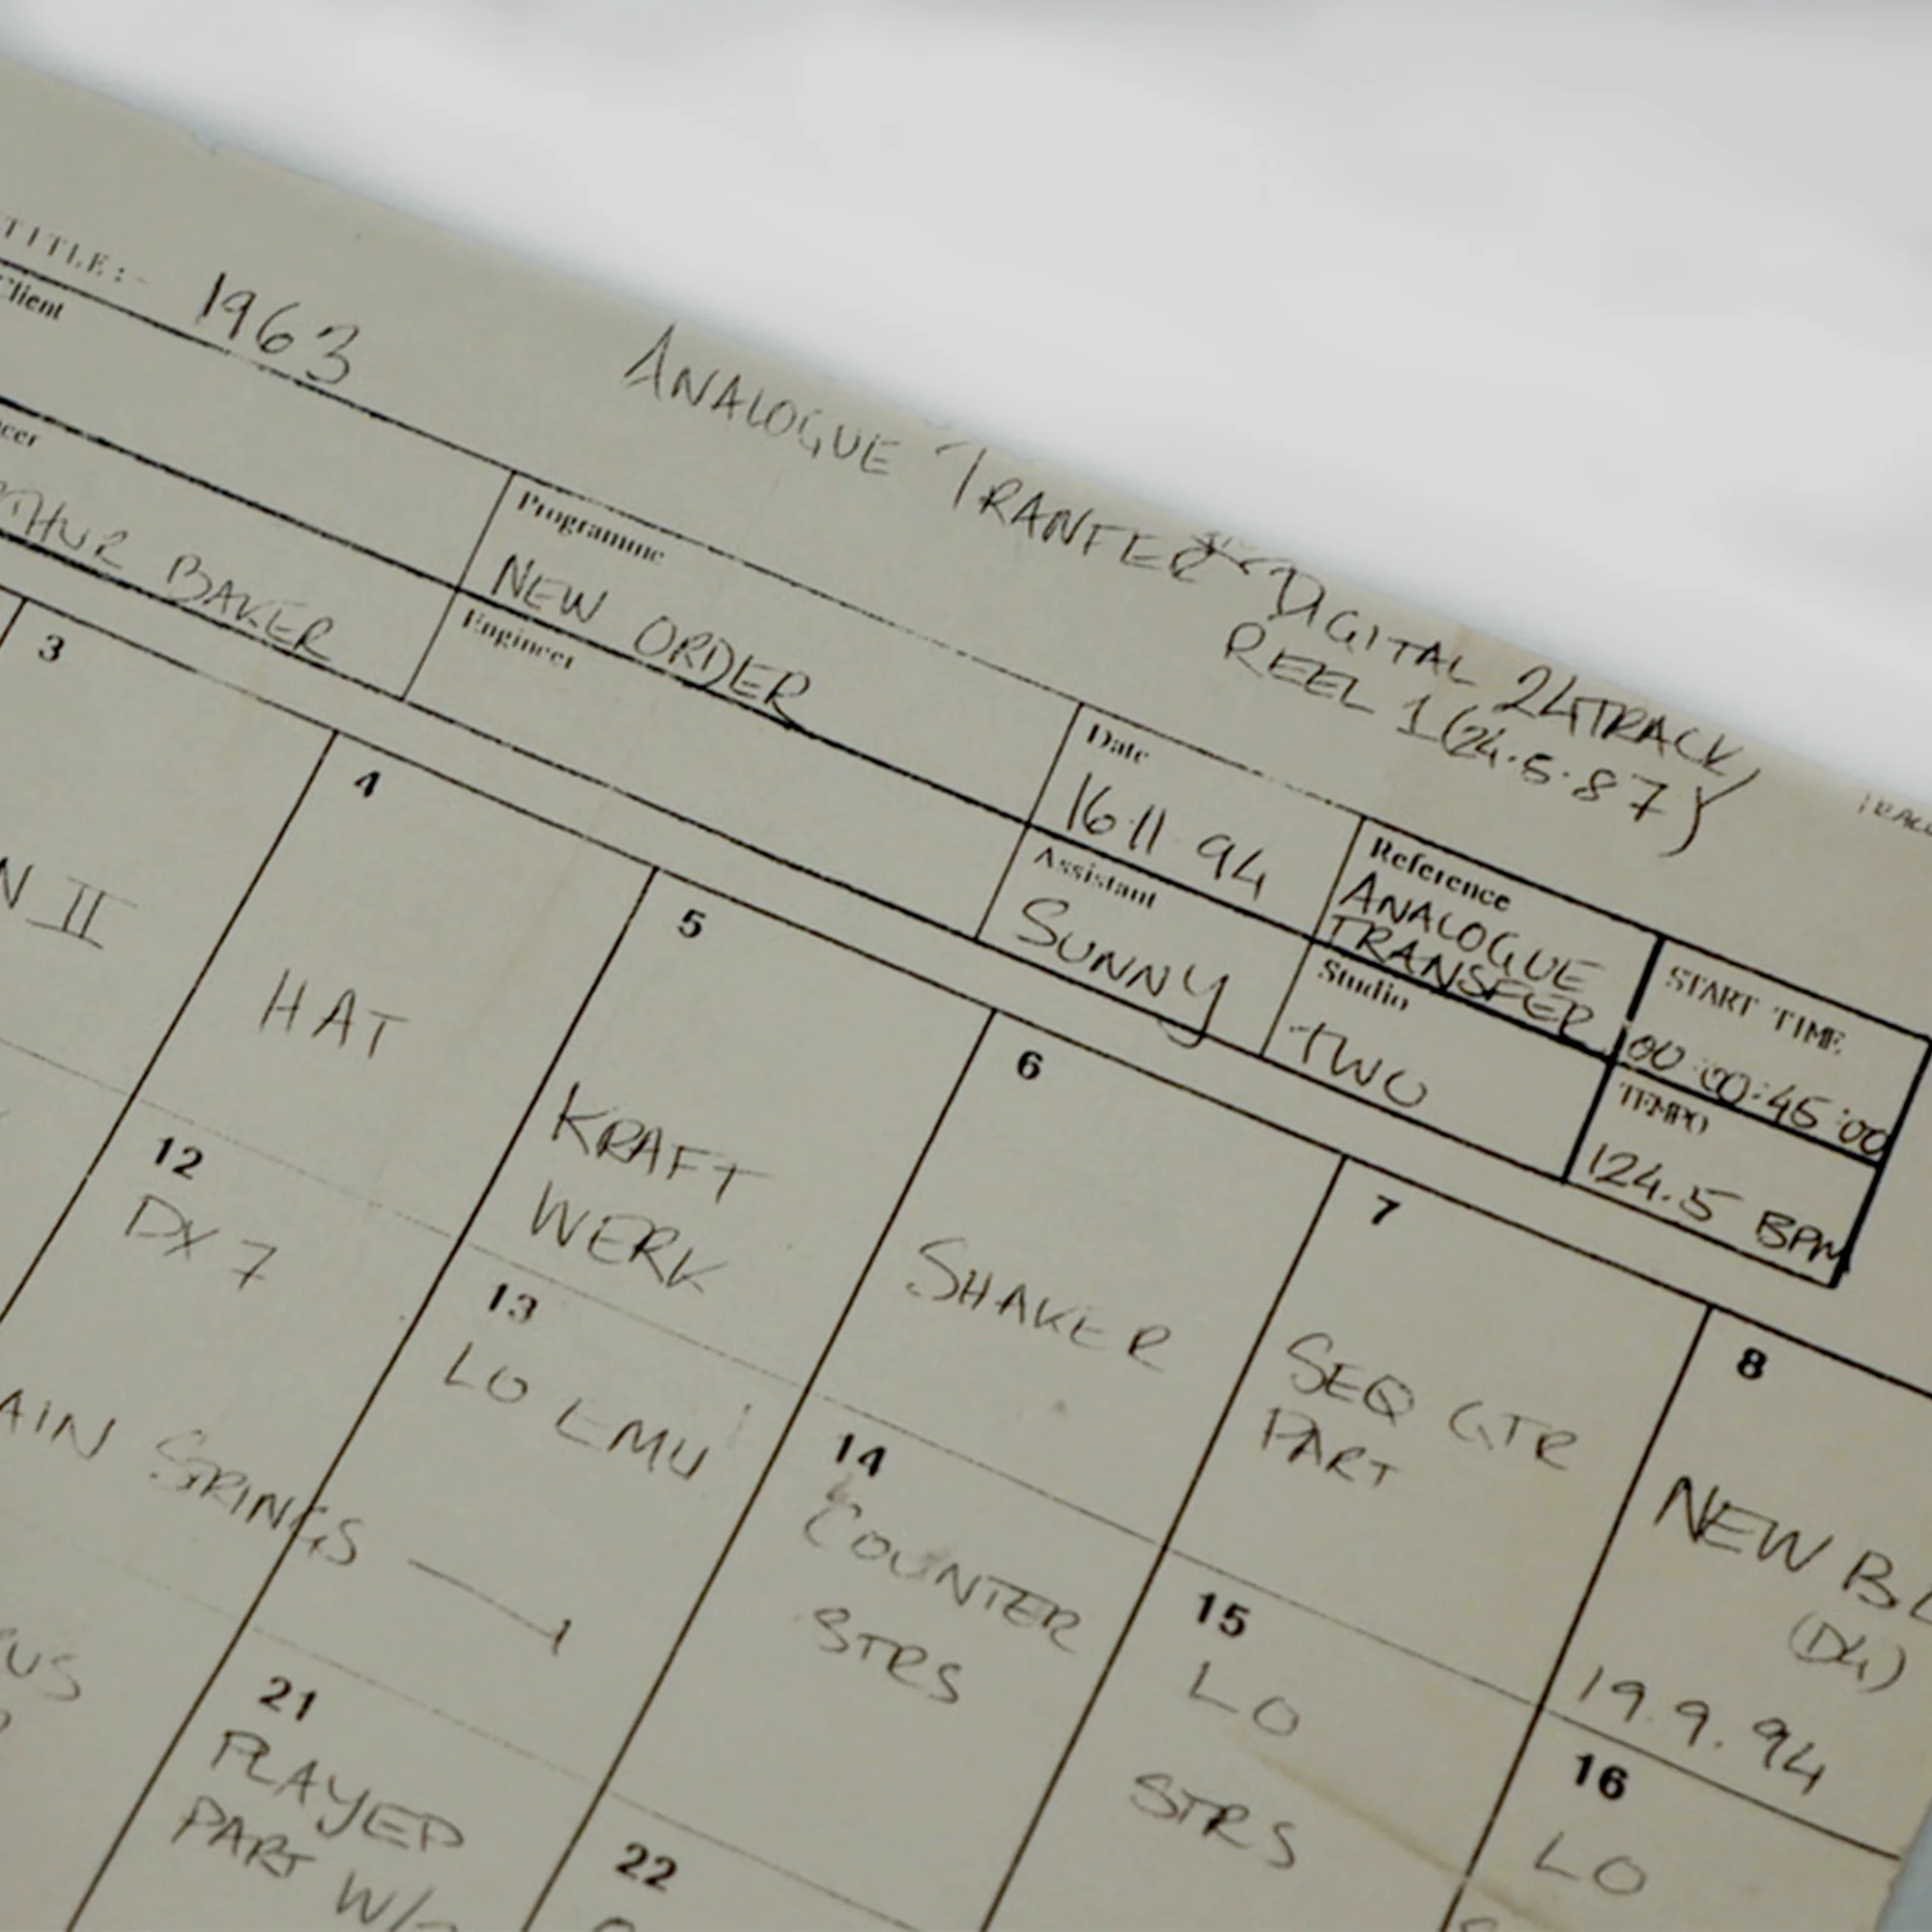 TITLE:- 1963
ANALOGUE TRANFER DIGITAL 24TRACK
REEL 1 (24.5.87)
Client
Programme
NEW ORDER
Date
16 11 94
Reference
ANALOGUE
TRANSFER
START TIME
00:00:45:00
BAKER
Engineer
Assistant
SUNNY
Studio
TWO
TEMPO
124.5 BPM
3
II
4
HAT
5
KRAFT
WERK
6
SHAKER
7
SEQ GTR
PART
8
NEW
(D4)
19.9.94
12
DX 7
STRINGS
13
LO EMU
14
COUNTER
STRS
15
LO
STRS
16
LO
21
PLAYED
PART
22